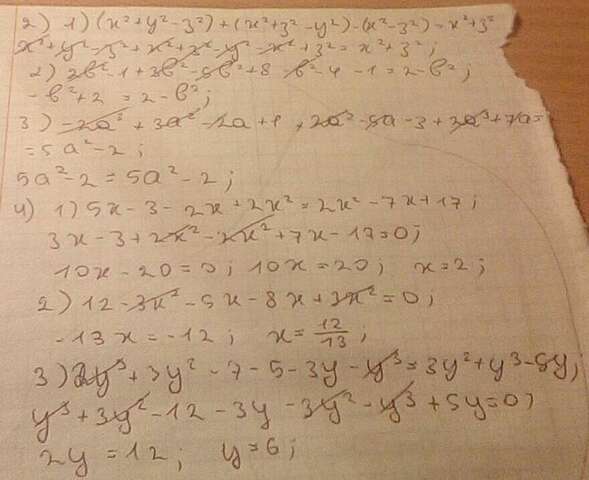 2) 1) (x²+y²-3²)+(x²+3²-y²)-(x²-3²)=x²+3²
x²+y²-3²+x²+3²-y²-x²+3²=x²+3²;
2) 2b²-1+3b²-5b²+8 b²-4-1=2-b²;
-b²+2=2-b²;
3) -2a³+3a²-2a+1+2a²-5a-3+2a³+7a=
=5a²-2;
5a²-2=5a²-2;
4) 1) 5x-3-2x+2x²=2x²-7x+17;
3x-3+2x²-2x²+7x-17=0;
10x-20=0; 10x=20; x=2;
2) 12-3x²-5x-8x+3x²=0;
-13x=-12; x=12/13;
3) 2y³+3y²-7-5-3y-y³=3y²+y³-5y;
y³+3y²-12-3y-3y²-y³+5y=0;
2y=12; y=6;